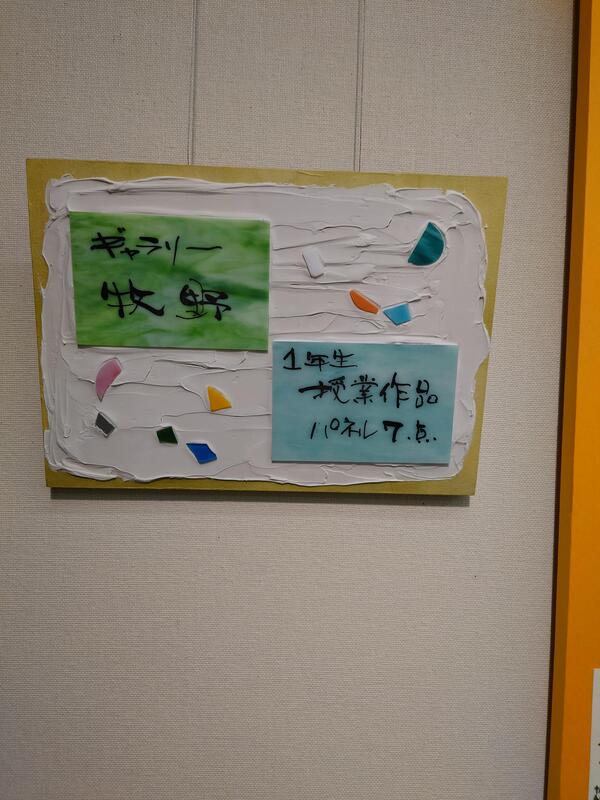 ギャラリー
牧野
1年生
授業作品
パネル7点